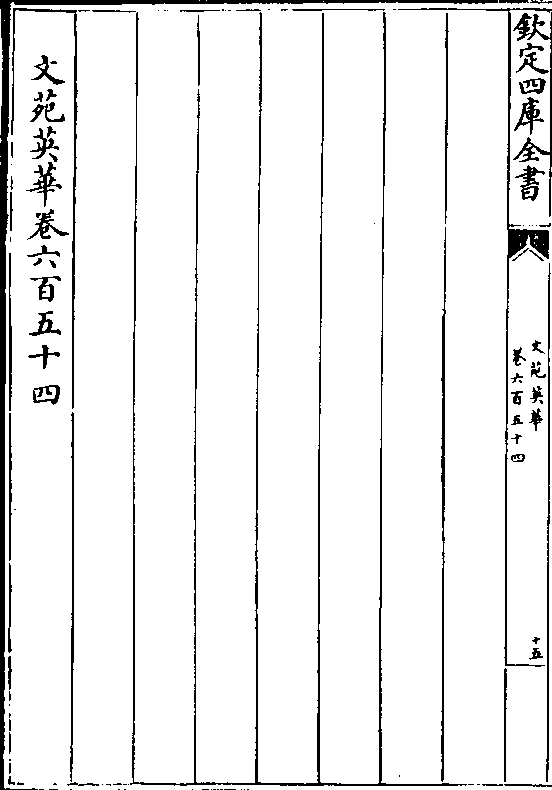 欽定四庫全書
文苑英華
卷六百五十四
十五
文苑英華卷六百五十四